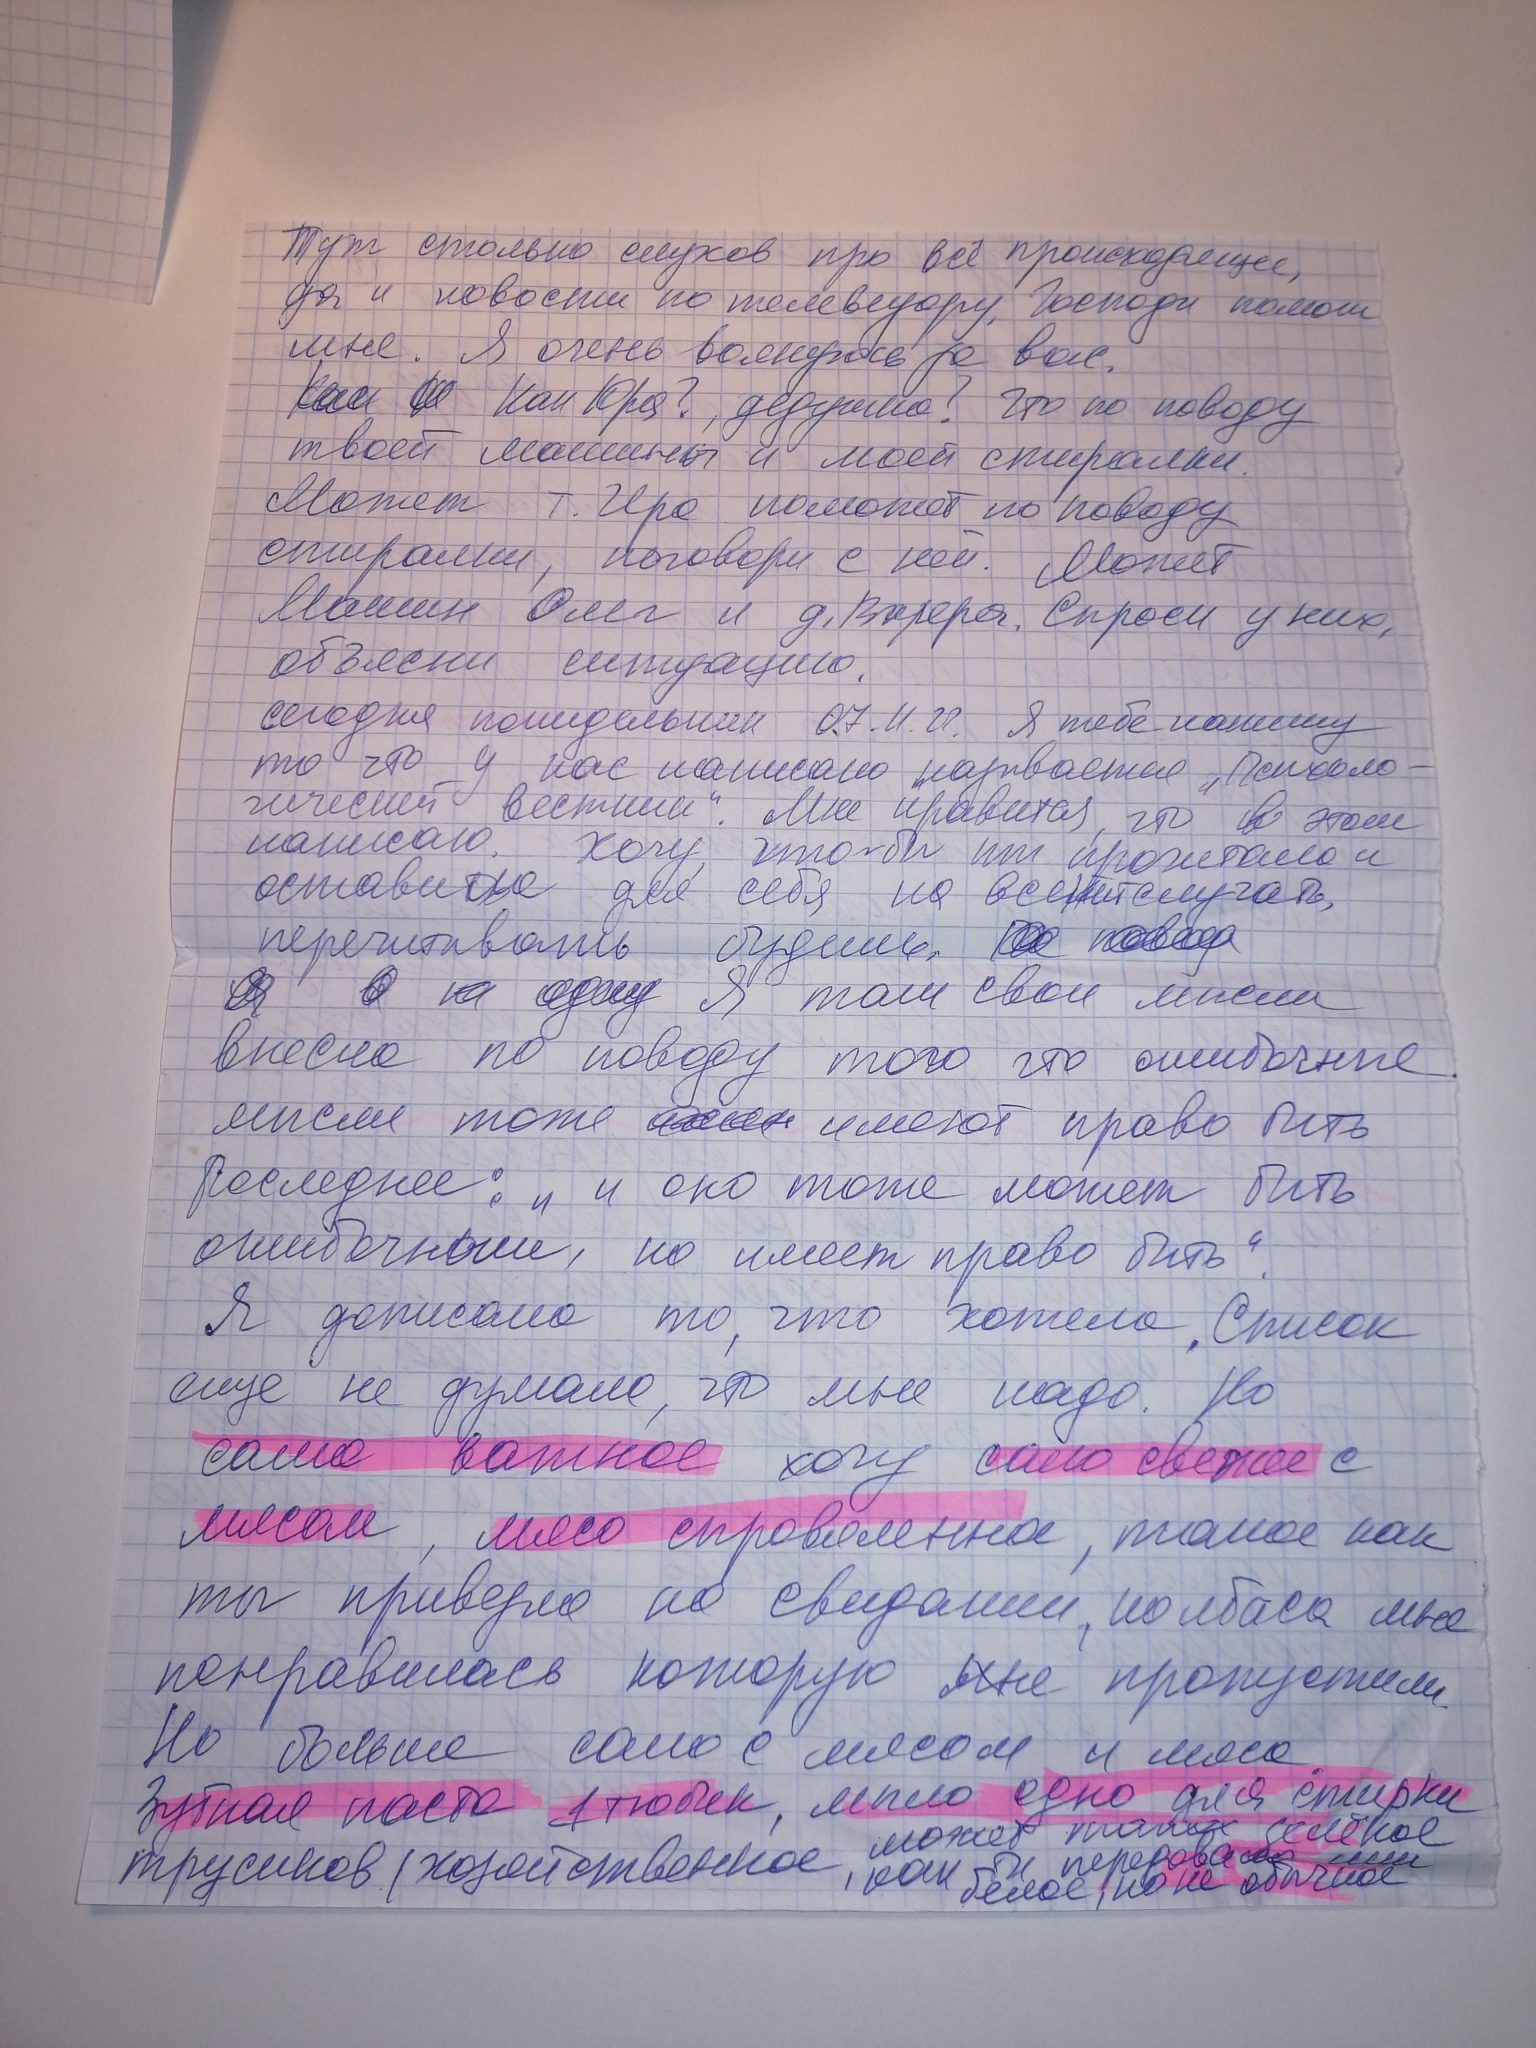 Тут столько слухов про всё происходящее,
да и новости по телевизору. Господи помоги
мне. Я очень волнуюсь за вас.
Как Юра?, дедушка? Что по поводу
твоей машины и моей стиралки.
Может т. Ира поможет по поводу
стиралки, поговори с ней. Может
Машин Олег и д. Валера. Спроси у них,
объясни ситуацию.
сегодня понидельник 07.11.22. Я тебе напишу
то что у нас написано называется „Психоло-
гический вестник“. Мне нравится, что в этом
написано. Хочу, что-бы ты прочитала и
оставила для себя на всякий случать,
перечитывать будешь.
Я там свои мысли
внесла по поводу того что ошибочные
мысли тоже имеют право быть
Последнее: „и оно тоже может быть
ошибочным, но имеет право быть“.
Я дописала то, что хотела. Список
еще не думала, что мне надо. Но
само важное хочу сало свежее с
мясом, мясо справяленное, такое как
ты привезла на свидании, колбаса мне
понравилась которую мне пропустили.
Но больше сало с мясом и мясо
Зубная паста 1 тюбик, мыло одно для стирки
трусиков (хозяйственное, может такое зелёное
как бы передавала или
белое, но не обычное